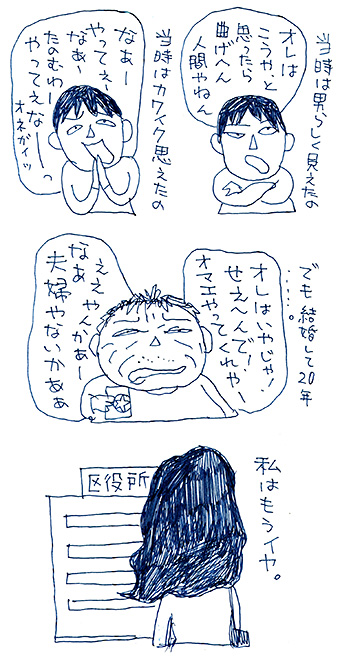 当時は男らしく見えたの
オレは
こうや、と
思ったら
曲げへん
人間やねん
当時はカワイク思えたの
なぁー
やってぇー
なぁ〜
なぁー
たのむわー
やってぇなーっ
オネがイッ
でも結婚して20年
……。
オレはいやじゃ!
せぇ〜んで!
オマエやってくれゃー
ええやんかぁー
なぁ
夫婦やないかぁぁ
私はもうイヤ。
区役所